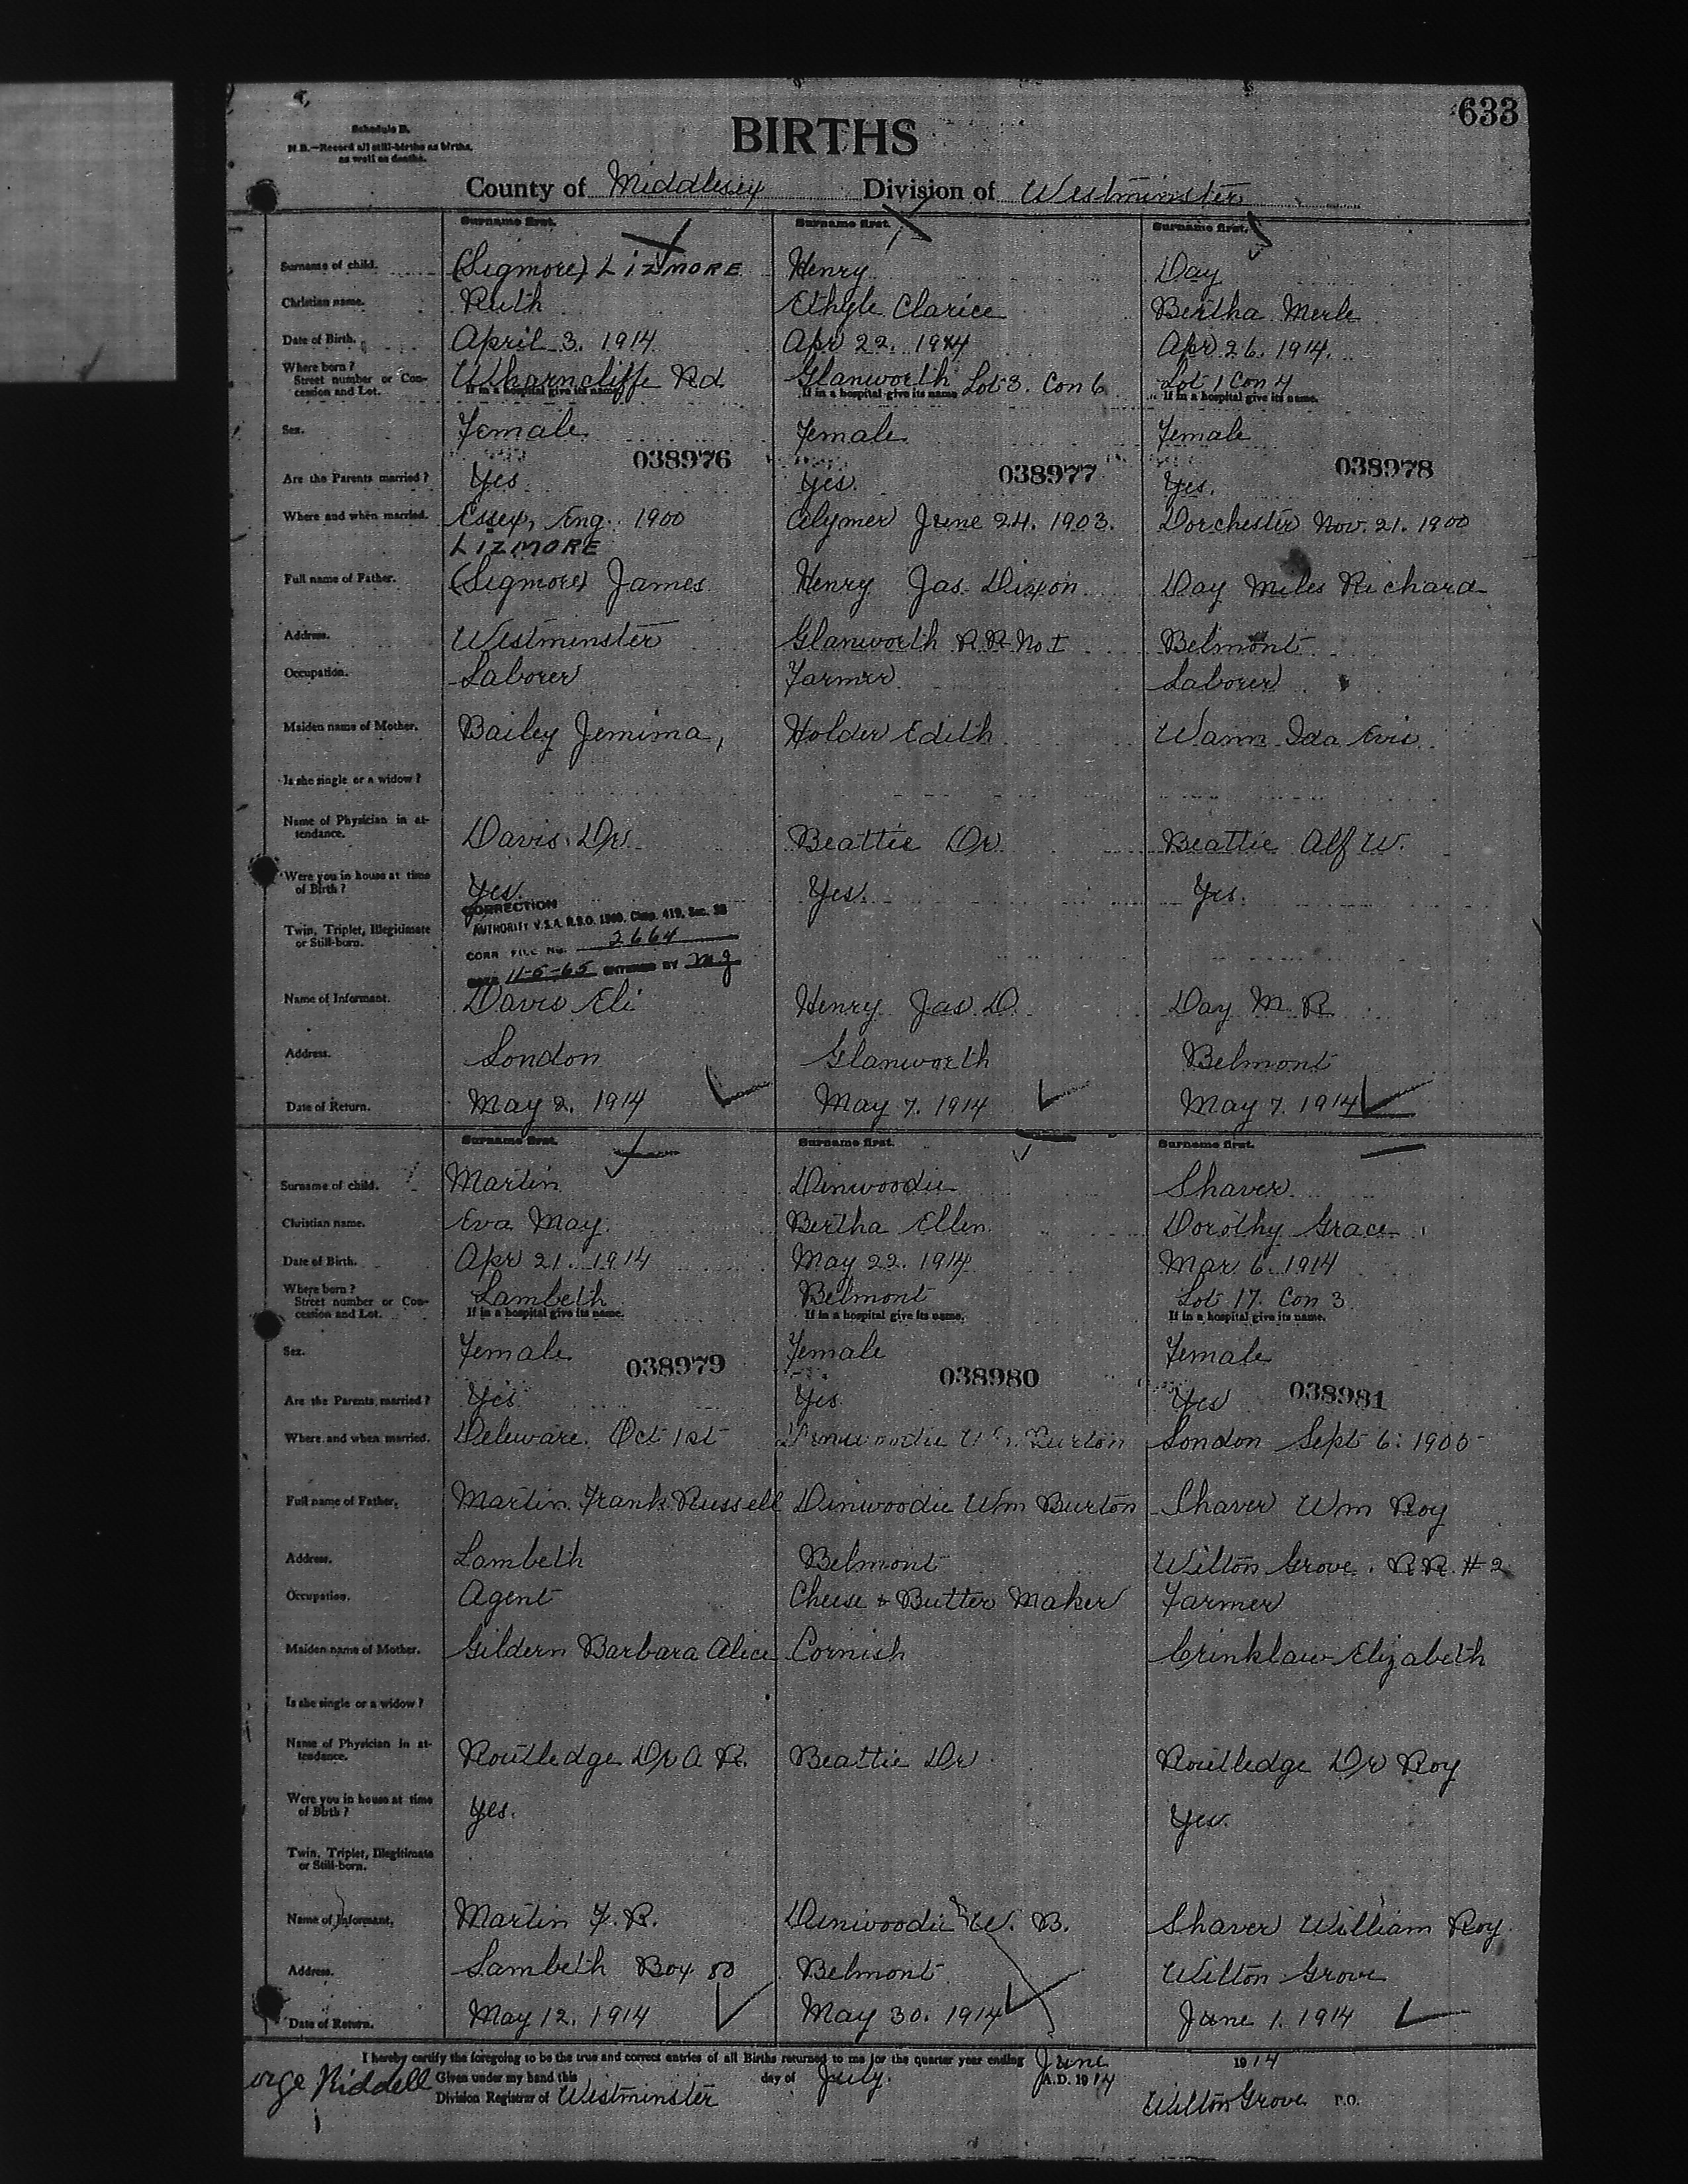 633
Schedule B.
N.B.—Record all still-births as births, as well as deaths.
BIRTHS
County of Middlesex Division of Westminster
Surname first. Surname first. Surname first.
Surname of child. (Sigmore) LIZMORE Henry Day
Christian name. Ruth Ethyle Clarice Bertha Merle
Date of Birth. April 3. 1914 Apr 22. 1914 Apr 26. 1914.
Where born? Street number or Concession and Lot. Wharncliffe Rd Glanworth Lot 3. Con 6 Lot 1 Con 4
If in a hospital give its name. If in a hospital give its name If in a hospital give its name.
Sex. Female Female Female
038976 038977 038978
Are the Parents married? Yes Yes. Yes.
Where and when married. Essex, Eng. 1900 Alymer June 24. 1903. Dorchester Nov. 21. 1900
LIZMORE
Full name of Father. (Sigmore) James Henry Jas Dixon Day Miles Richard
Address. Westminster Glanworth R.R. No I Belmont
Occupation. Laborer Farmer Laborer
Maiden name of Mother. Bailey Jemima, Holder Edith Wann Ida
Is she single or a widow?
Name of Physician in attendance. Davis Dr. Beattie Dr Beattie Alf W.
Were you in house at time of Birth? Yes. Yes. Yes.
CORRECTION
AUTHORITY V.S.A. R.S.O. 1960, Chap. 419, Sec.
Twin, Triplet, Illegitimate or Still-born.
CORR. FILE No. 2664
DATE 11-5-65 ENTERED BY
Name of Informant. Davis Eli Henry Jas D. Day M. R
Address. London Glanworth Belmont
Date of Return. May 2. 1914 May 7. 1914 May 7. 1914
Surname first. Surname first. Surname first.
Surname of child. Martin Dinwoodie Shaver
Christian name. Eva May Bertha Ellen Dorothy Grace
Date of Birth. Apr 21. 1914 May 22. 1914 Mar 6. 1914
Where born? Street number or Concession and Lot. Lambeth Belmont Lot 17. Con 3
If in a hospital give its name. If in a hospital give its name. If in a hospital give its name.
Sex. Female Female Female
038979 038980 038981
Are the Parents married? Yes Yes Yes
Where and when married. Deleware. Oct 1st Dinwoodie Burton London Sept 6.
Full name of Father. Martin Frank Russell Dinwoodie Wm Burton Shaver Wm Roy
Address. Lambeth Belmont Wilton Grove. R.R. #2
Occupation. Agent Cheese & Butter Maker Farmer
Maiden name of Mother. Gildern Barbara Alice Cornish Crinklaw Elizabeth
Is she single or a widow?
Name of Physician in attendance. Routledge Dr A R. Beattie Dr Routledge Dr Roy
Were you in house at time of Birth? Yes. Yes.
Twin, Triplet, Illegitimate or Still-born.
Name of Informant. Martin F. R. Dinwoodie W. B. Shaver William Roy
Address. Lambeth Box 80 Belmont Wilton Grove
Date of Return. May 12. 1914 May 30. 1914 June 1. 1914
I hereby certify the foregoing to be the true and correct entries of all Births returned to me for the quarter year ending June 1914
orge Riddell Given under my hand this day of July. A.D. 1914
Division Registrar of Westminster Wilton Grove P.O.